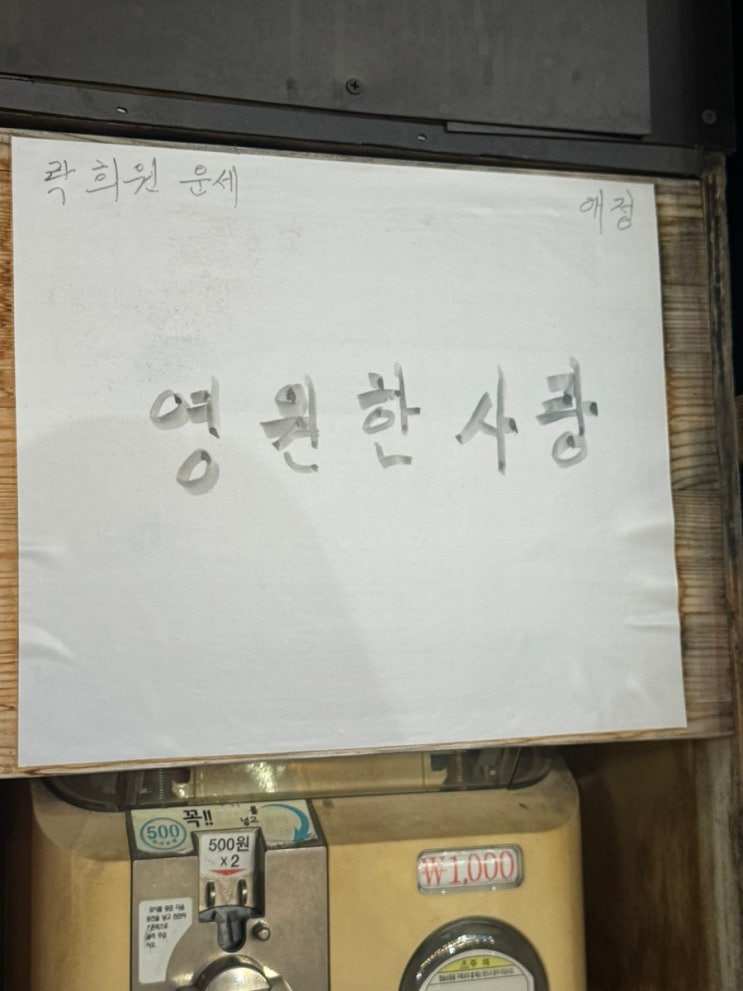 곽희원 운세
애정
영원한 사랑
500
꼭!!
를
넣고
500원
×2
₩1,000
주의